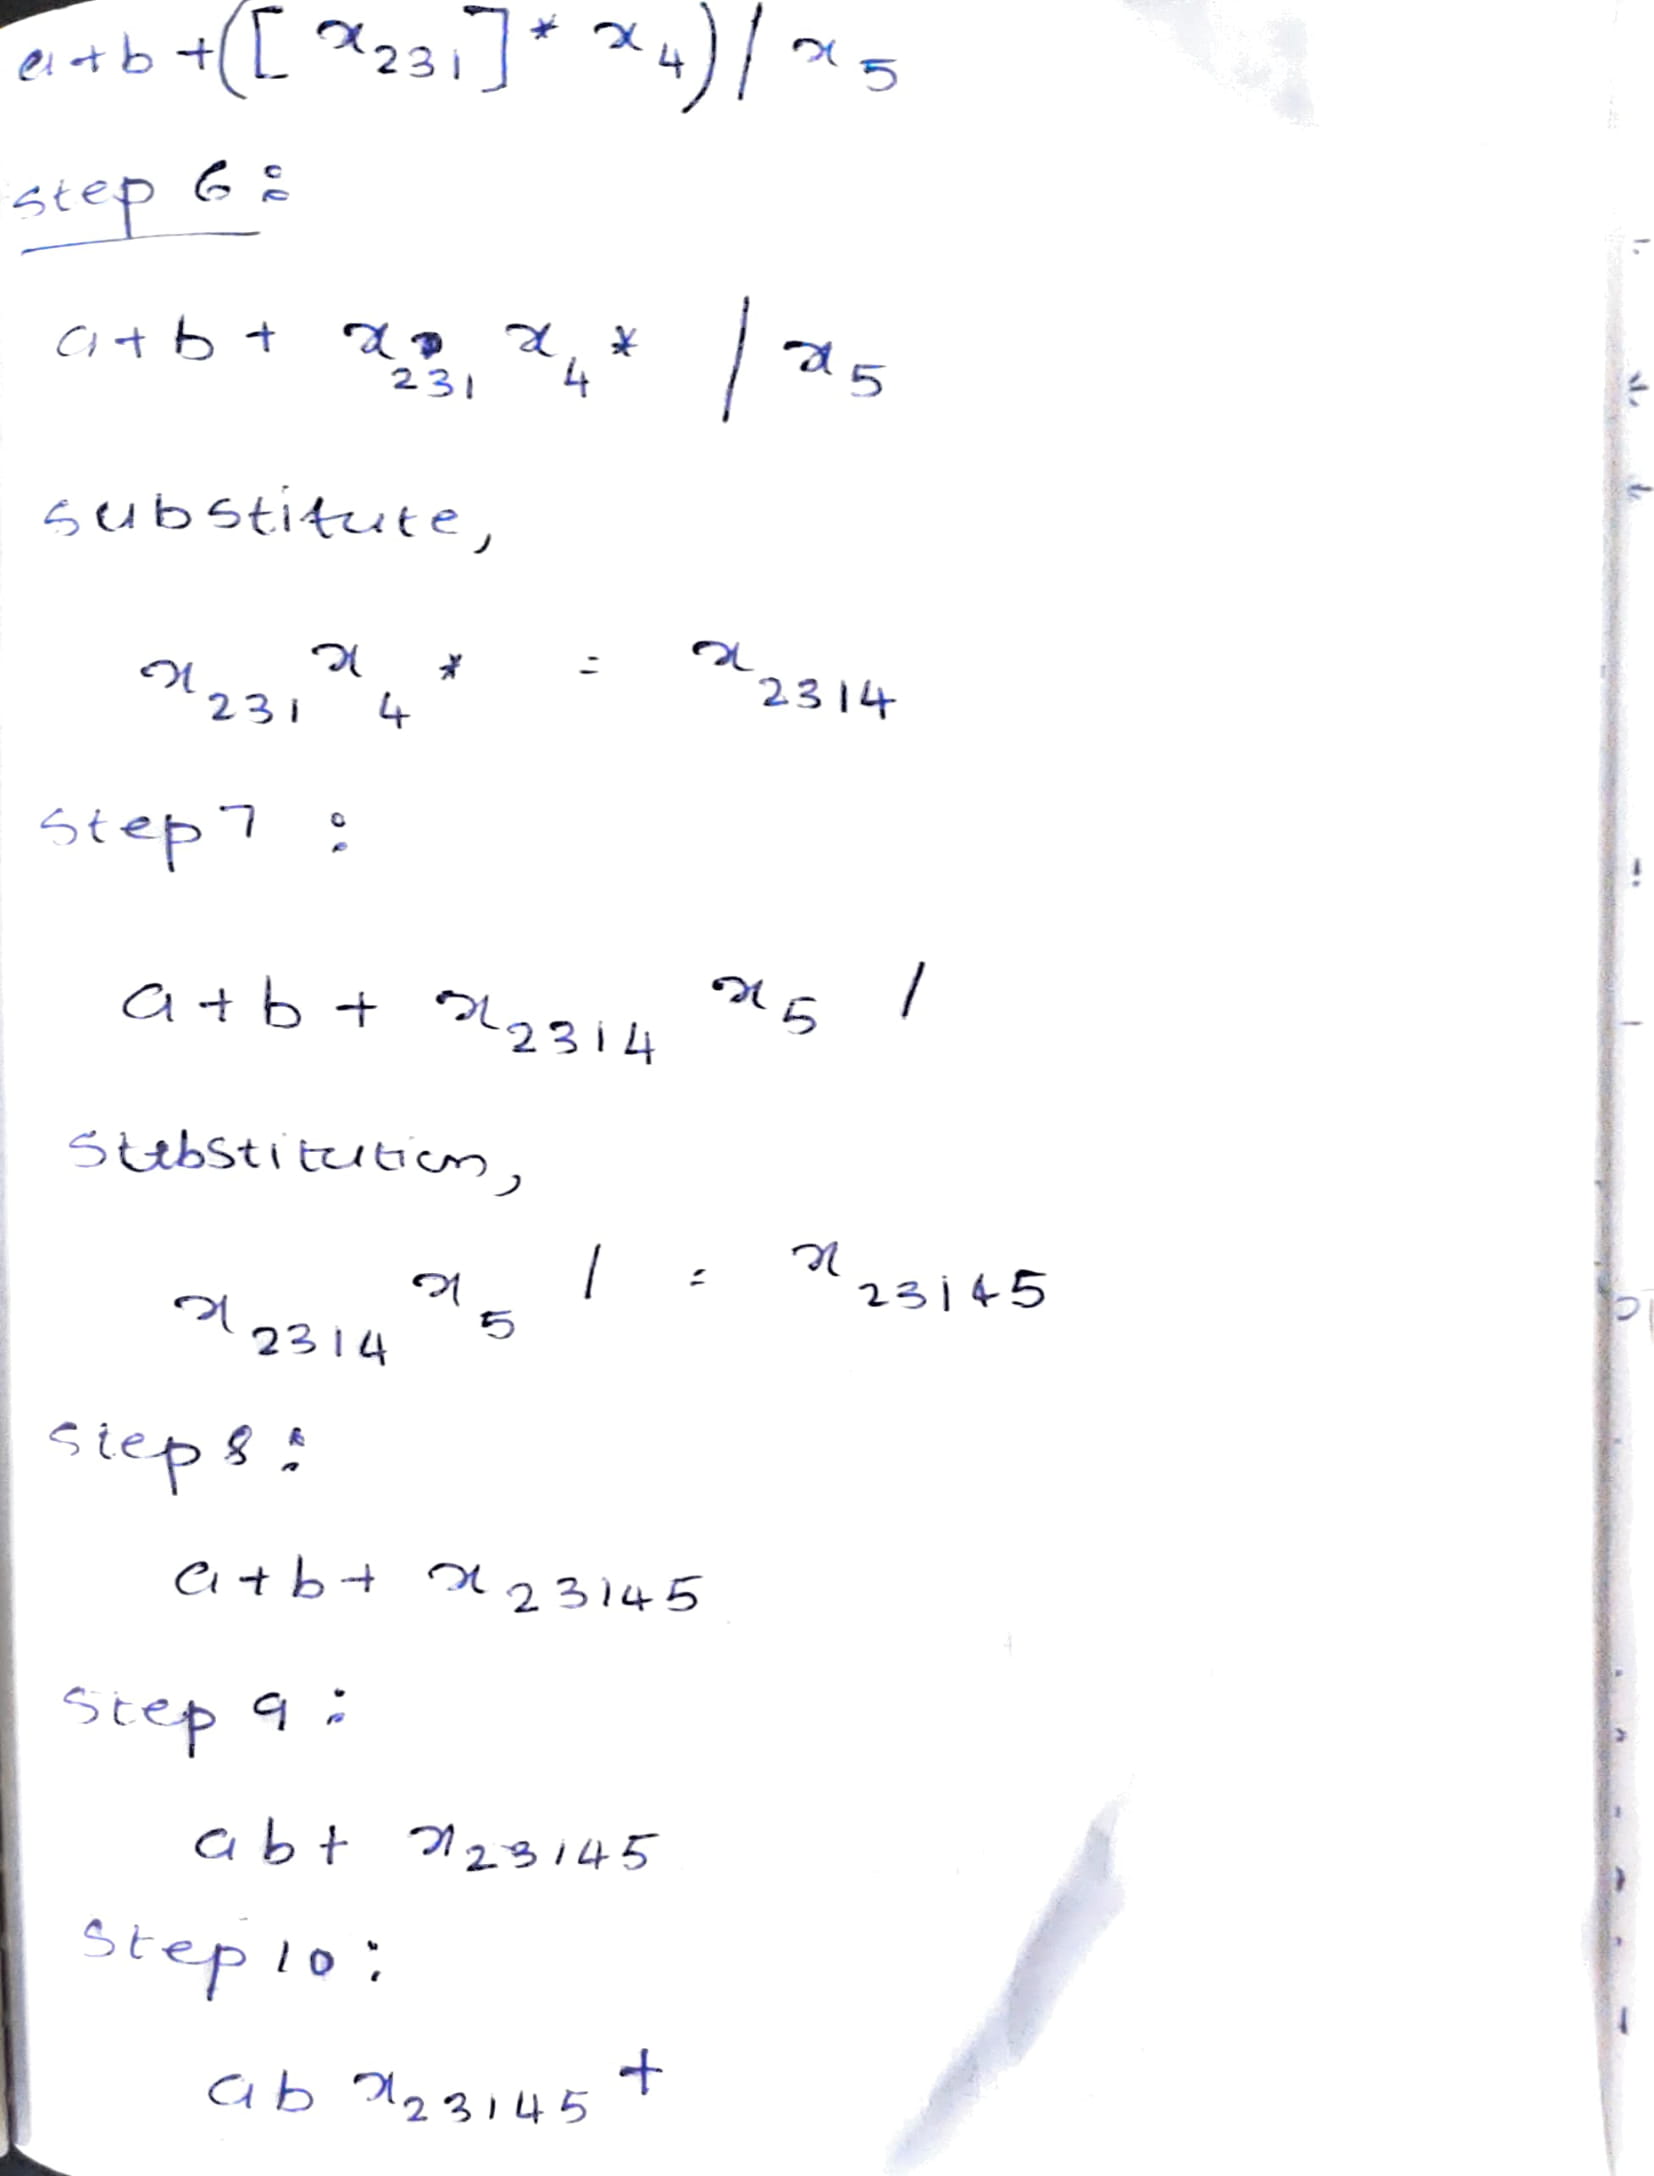 a+b+([x₂₃₁]*x₄)/x₅
step 6:
a+b+ x₂₃₁ x₄ * / x₅
substitute,
x₂₃₁ x₄ * = x₂₃₁₄
step 7 :
a+b+ x₂₃₁₄ x₅ /
substitution,
x₂₃₁₄ x₅ / = x₂₃₁₄₅
step 8:
a+b+ x₂₃₁₄₅
step 9:
ab+ x₂₃₁₄₅
step 10:
ab x₂₃₁₄₅ +